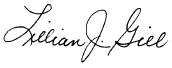 Lillian J. Gill